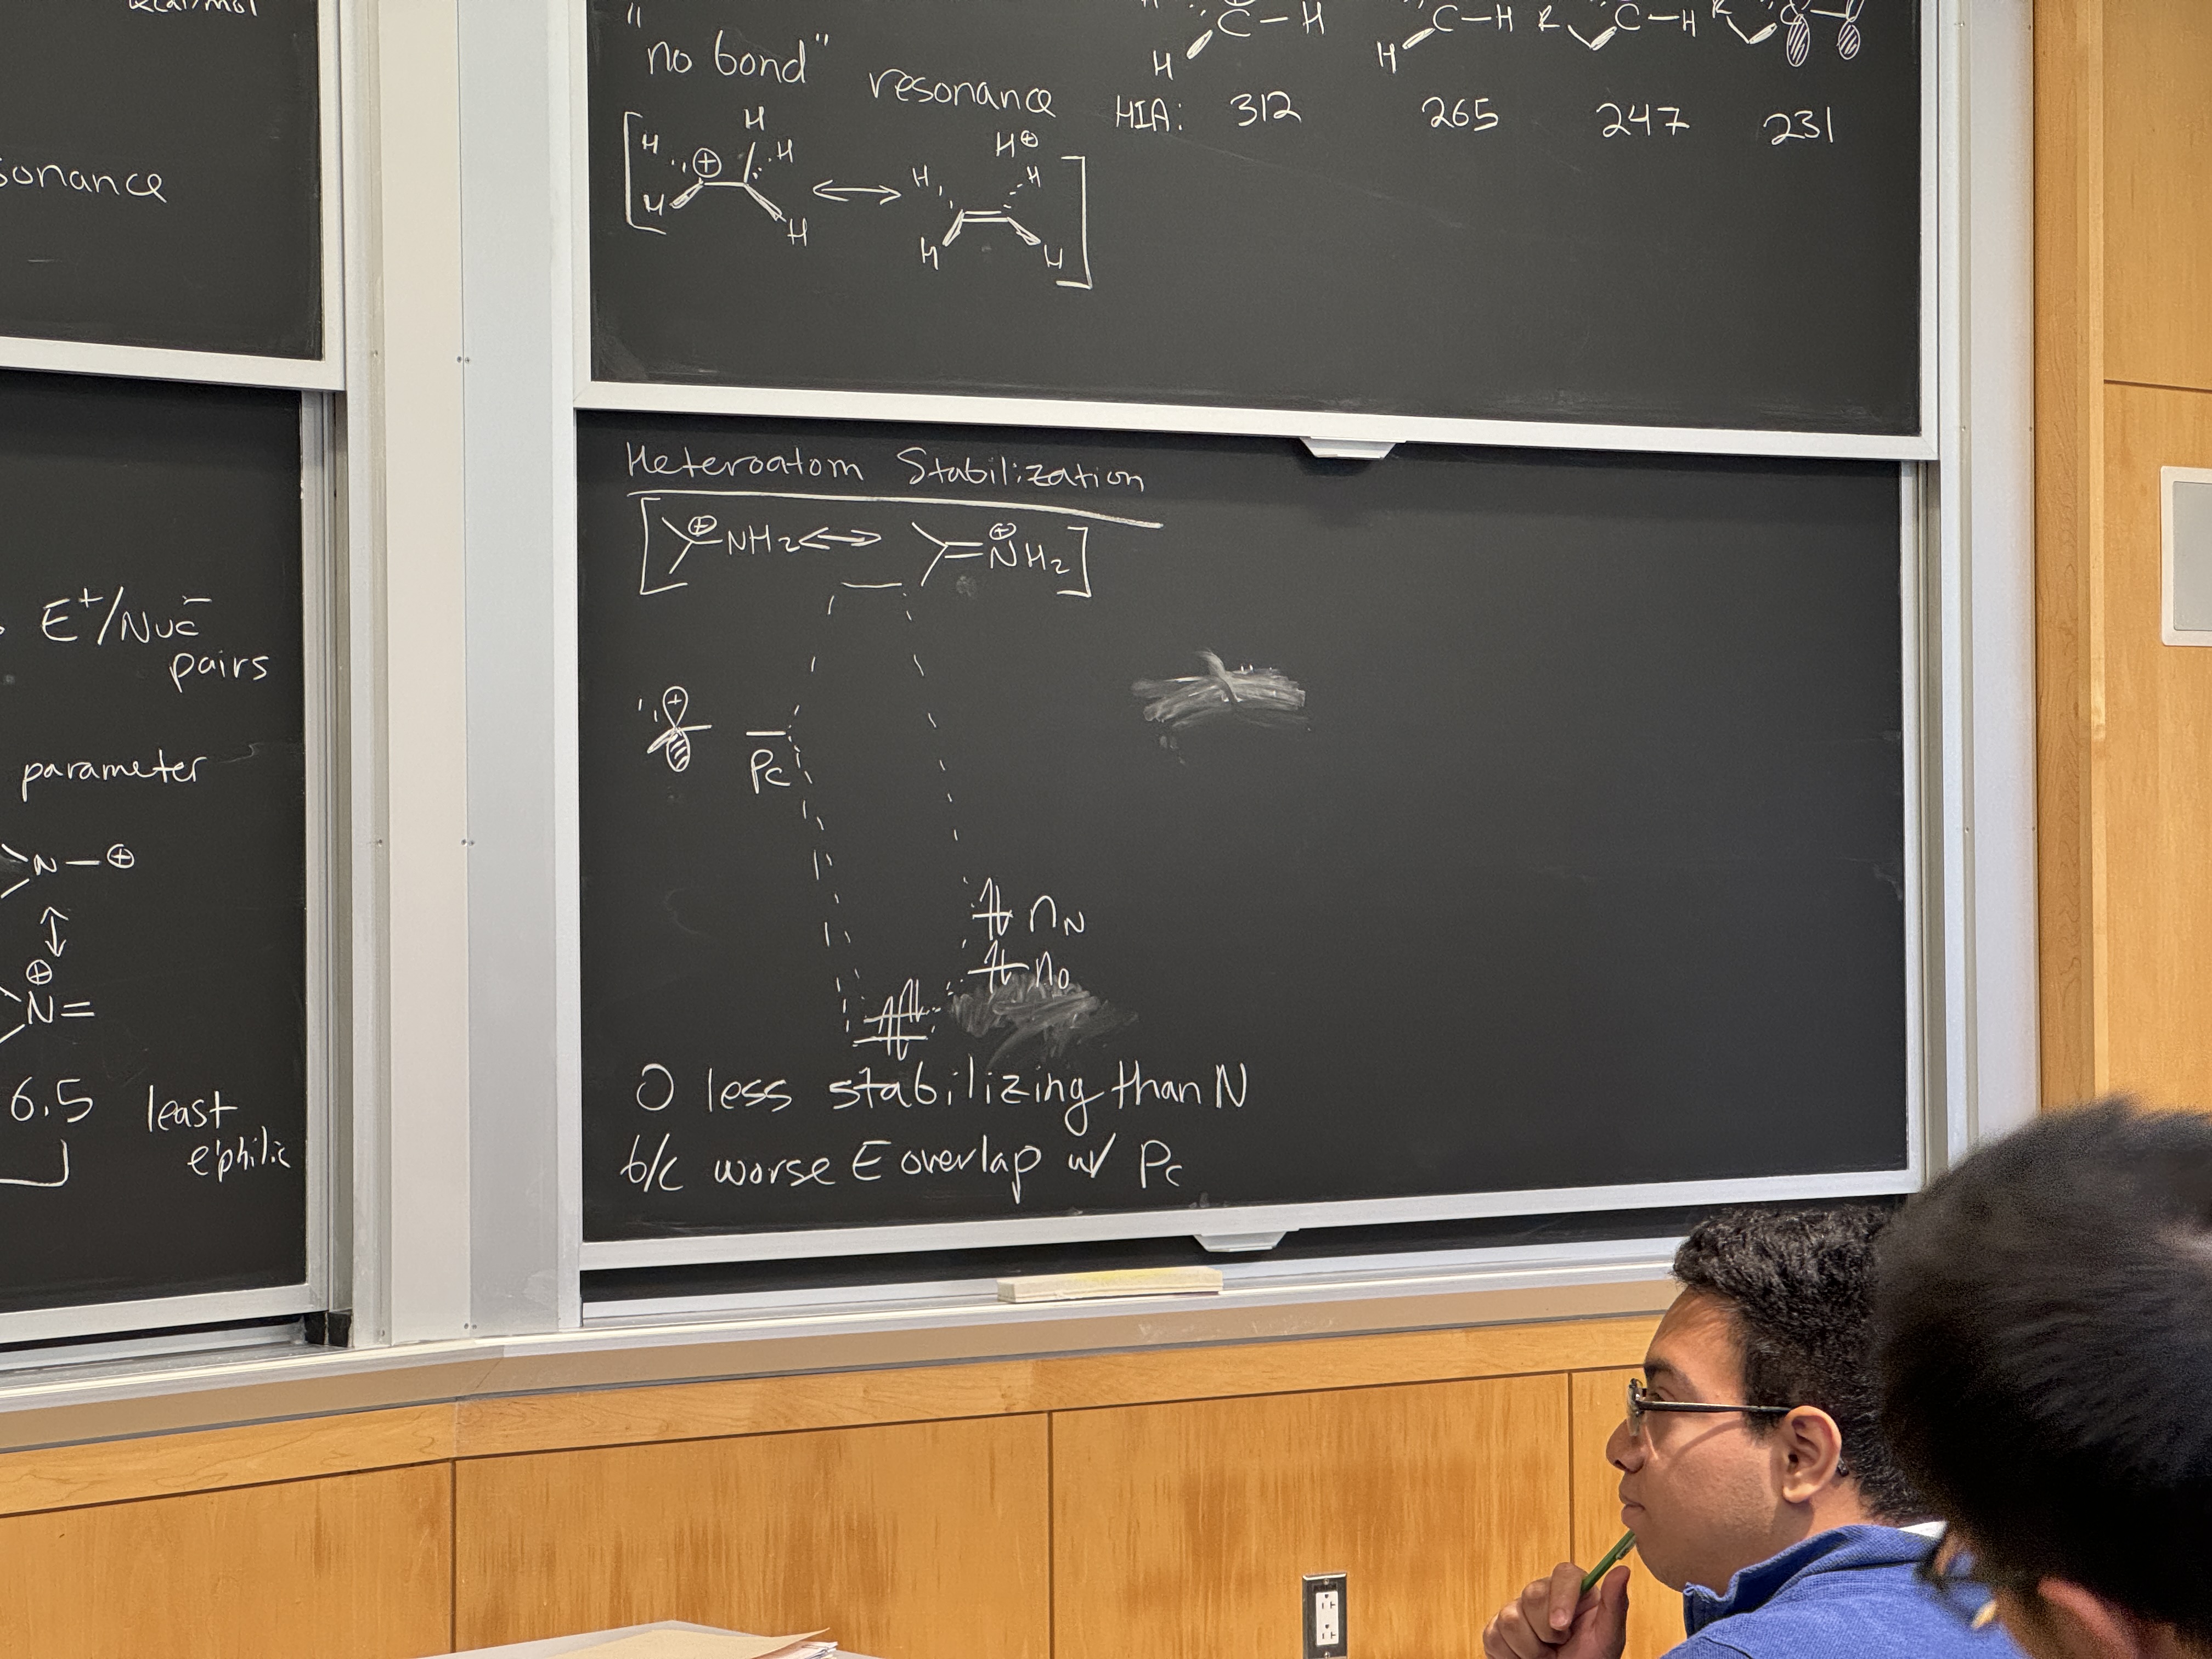 kcal/mol
sonance
E⁺/Nuc⁻
pairs
parameter
N—⊕
⊕
N=
6.5 least
e'philic
"no bond" resonance
H H H ⊕ H H
H⊕ H H H H
C—H H
C—H H
R C—H
R C
HIA: 312 265 247 231
Heteroatom Stabilization
[ ⊕ NH₂ ↔ = ⊕ NH₂ ]
+
Pc
nN
nO
O less stabilizing than N
b/c worse E overlap w/ Pc